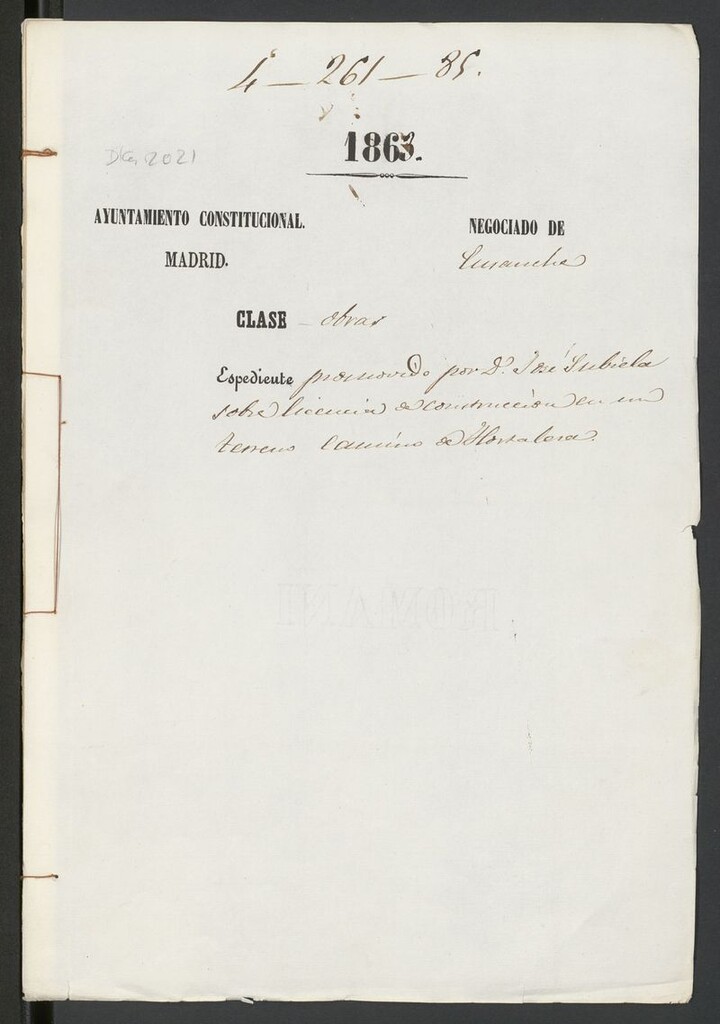 4 — 261 — 85.
1863.
AYUNTAMIENTO CONSTITUCIONAL.
MADRID.
NEGOCIADO DE
Ensanche
CLASE – obras
Espediente promovido por D. José Subiela
sobre licencia de construccion en un
terreno camino de Hortaleza.
ROMANI